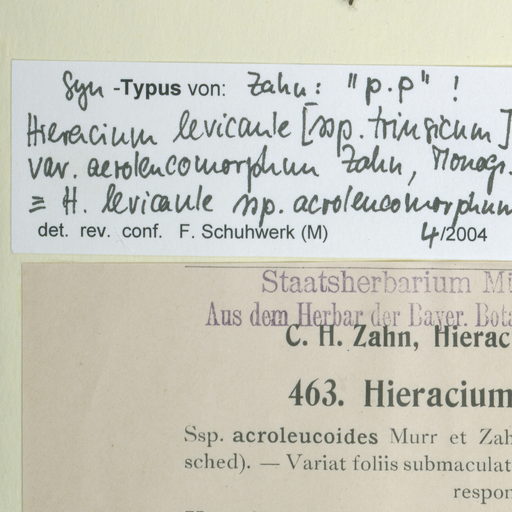 Syn -Typus von: Zahn: "p.p" !
Hieracium levicaule [ssp. trinsicum]
var. acroleucomorphum Zahn, Monogr.
≡ H. levicaule ssp. acroleucomorphum
det. rev. conf. F. Schuhwerk (M) 4/2004
Staatsherbarium Mü
Aus dem Herbar der Bayer. Bota
C. H. Zahn, Hierac
463. Hieracium
Ssp. acroleucoides Murr et Zah
sched). — Variat foliis submaculat
respon